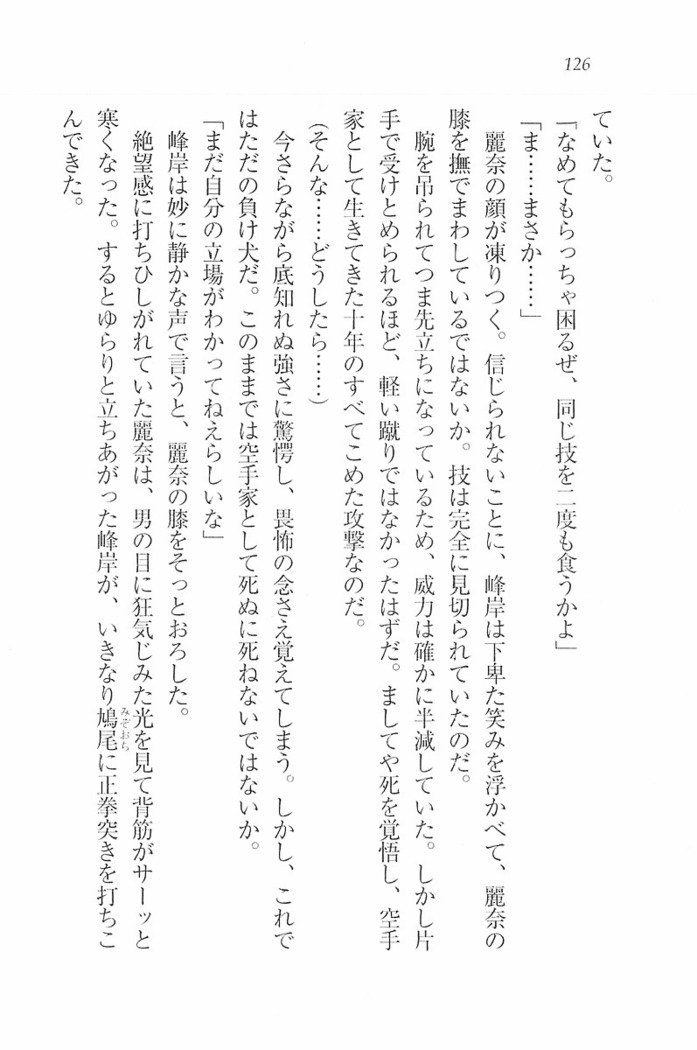 126
ていた。
「なめてもらっちゃ困るぜ、同じ技を二度も食うかよ」
「ま……まさか……」
麗奈の顔が凍りつく。信じられないことに、峰岸は下卑た笑みを浮かべて、麗奈の
膝を撫でまわしているではないか。技は完全に見切られていたのだ。
腕を吊られてつま先立ちになっているため、威力は確かに半減していた。しかし片
手で受けとめられるほど、軽い蹴りではなかったはずだ。ましてや死を覚悟し、空手
家として生きてきた十年のすべてこめた攻撃なのだ。
（そんな……どうしたら……）
今さらながら底知れぬ強さに驚愕し、畏怖の念さえ覚えてしまう。しかし、これで
はただの負け犬だ。このままでは空手家として死ぬに死ねないではないか。
「まだ自分の立場がわかってねえらしいな」
峰岸は妙に静かな声で言うと、麗奈の膝をそっとおろした。
絶望感に打ちひしがれていた麗奈は、男の目に狂気じみた光を見て背筋がサーッと
寒くなった。するとゆらりと立ちあがった峰岸が、いきなり鳩尾に正拳突きを打ちこ
みぞおち
んできた。